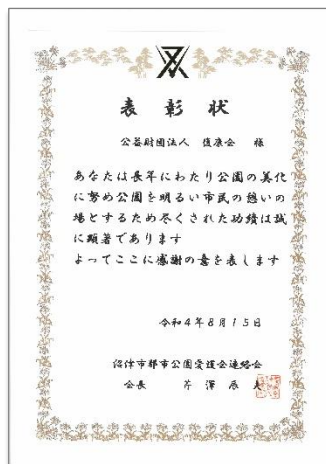 表彰状
公益財団法人 復康会 様
あなたは長年にわたり公園の美化
に努め公園を明るい市民の憩いの
場とするため尽くされた功績は誠
に顕著であります
よってここに感謝の意を表します
令和4年8月15日
沼津市都市公園愛護会連絡会
会長 芹澤辰夫